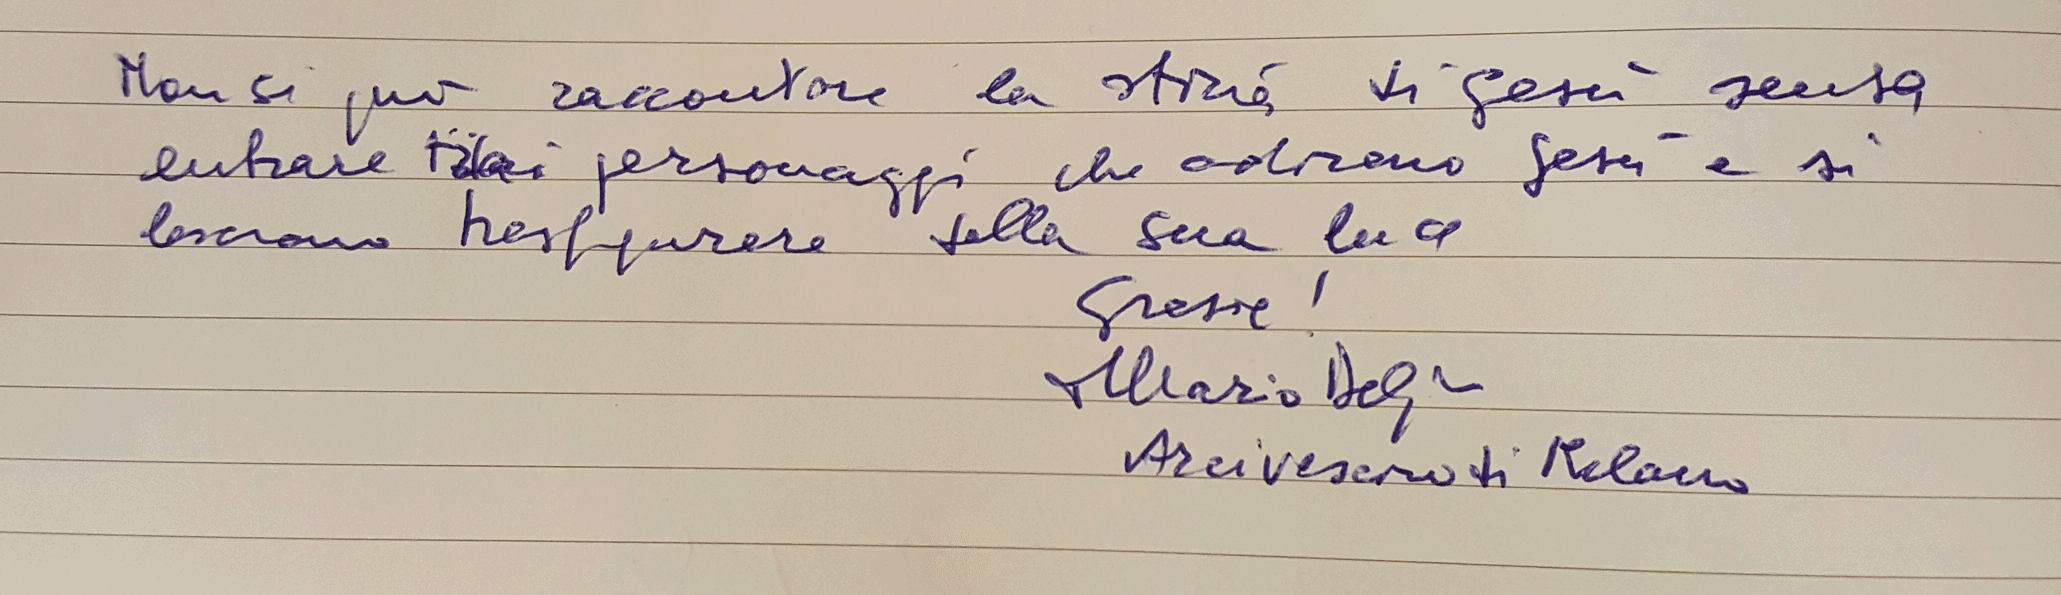 Non si può raccontare la storia di Gesù senza
entrare tra i personaggi che adirono Gesù e si
lasciano trasfigurare dalla sua luce
Grazie!
+ Mario Delpini
Arcivescovo di Milano